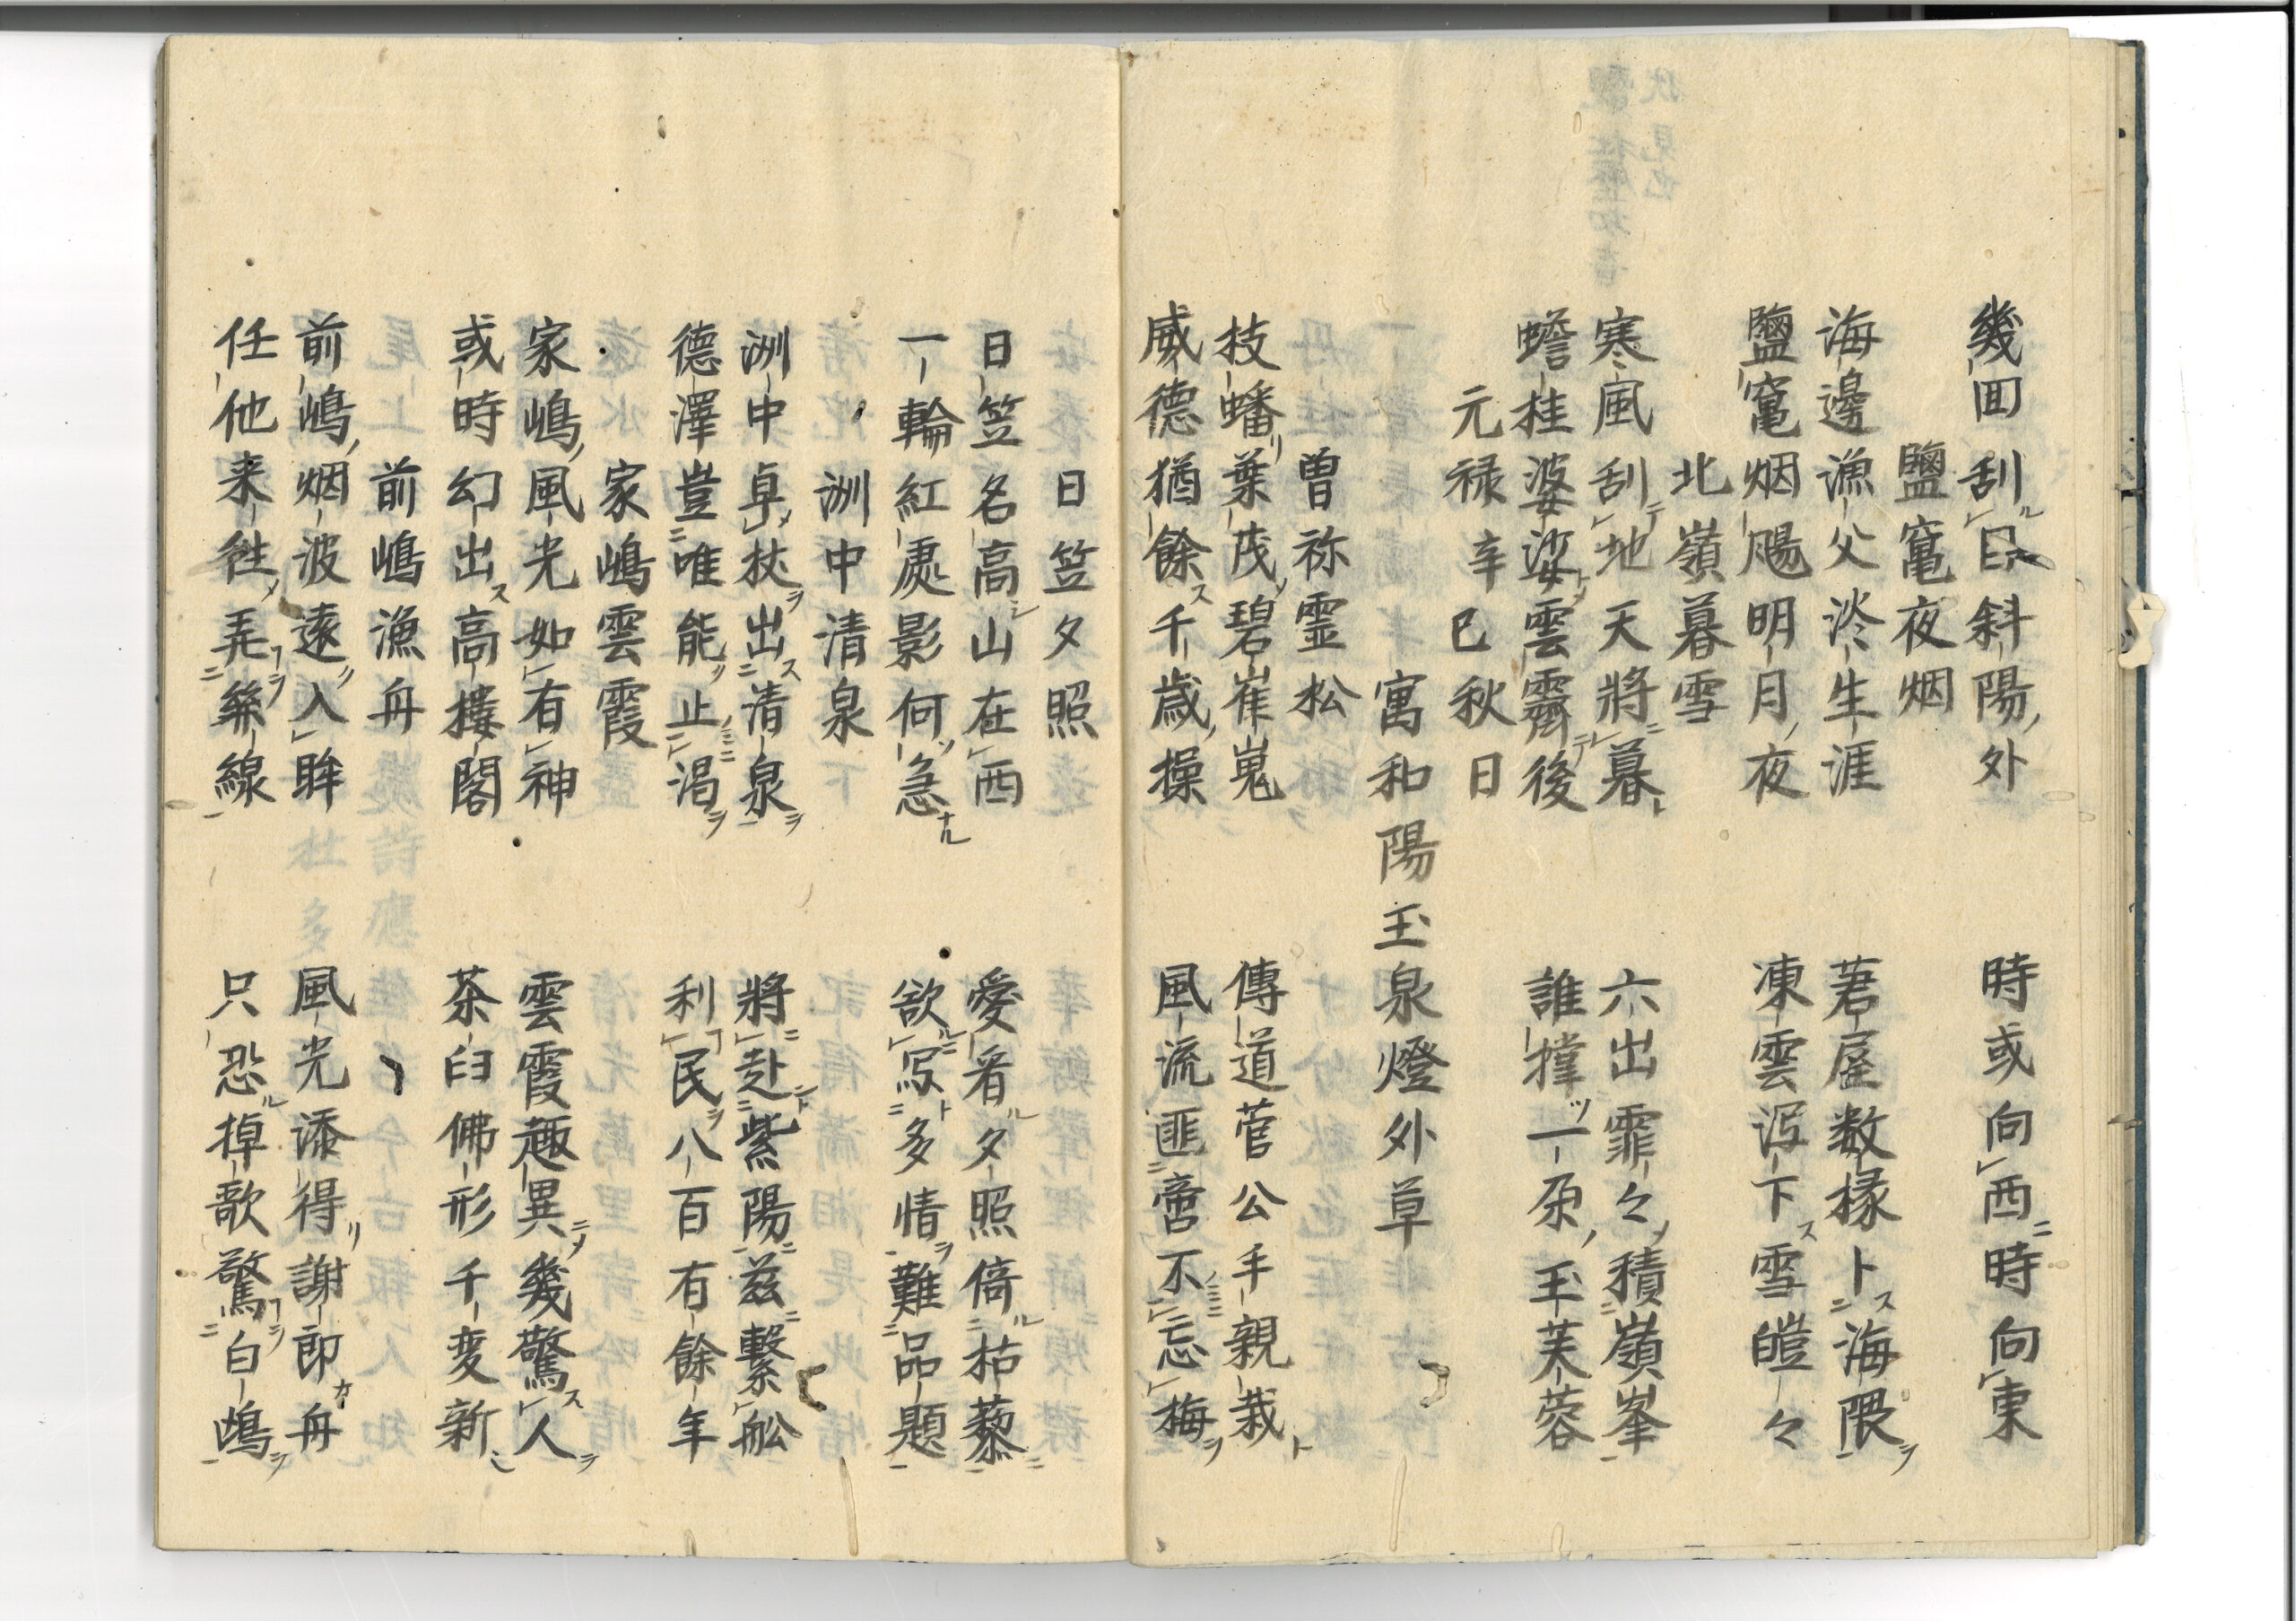 幾囬刮日斜陽外　時或向西時向東
鹽竃夜烟
海邊漁父淡生涯　茗屋数椽卜海隈
鹽竃烟颺明月夜　凍雲瀉下雪皚々
北嶺暮雪
寒風刮地天將暮　六出霏々積嶺峯
蟾桂婆娑雲霽後　誰撑一朶玉芙蓉
元禄辛巳秋日
寓和陽玉泉燈外草
曽祢霊松
枝蟠葉茂碧崔嵬　傳道菅公手親栽
威德猶餘千歳操　風流匪啻不忘梅
日笠夕照
日笠名高山在西　愛看夕照倚枯藜
一輪紅處影何急　欲写多情難品題
洲中清泉
洲中卓杖出清泉　將赴紫陽茲繫舩
德澤豈唯能止渇　利民八百有餘年
家嶋雲霞
家嶋風光如有神　雲霞趣異幾驚人
或時幻出高樓閣　茶臼佛形千変新
前嶋漁舟
前嶋烟波遠入眸　風光添得謝郎舟
任他来徃弄絲線　只恐棹歌驚白鴎